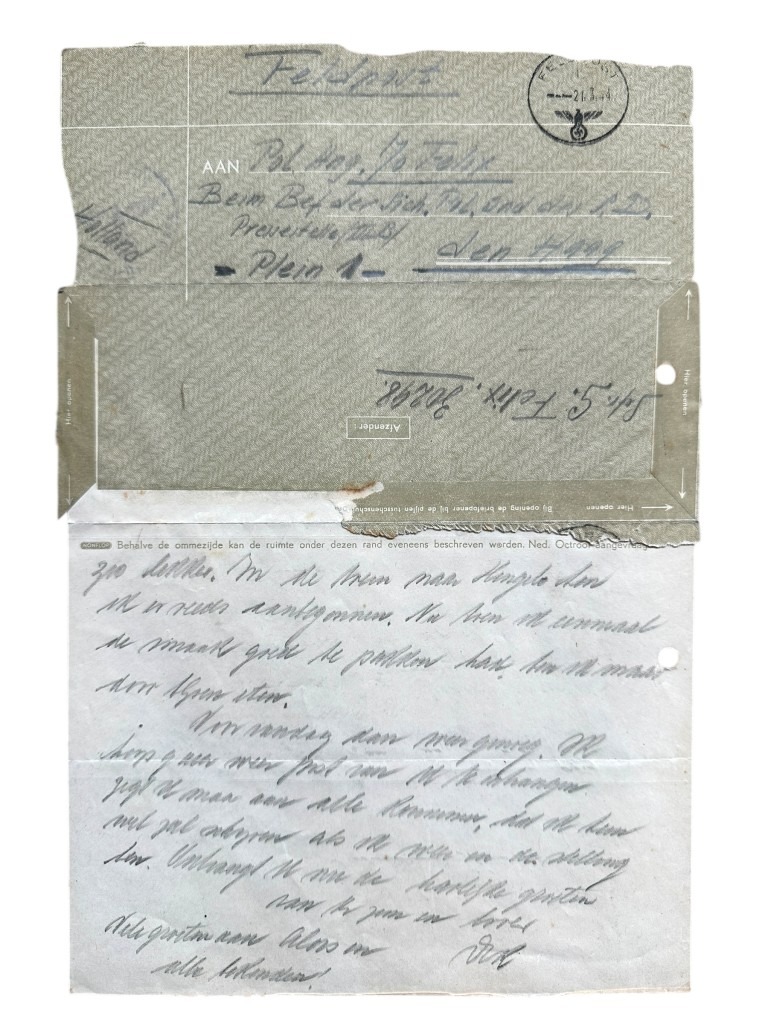 Feldpost
FELDPOST
21.3.44
AAN Pol. Ang. Jo Felix
Beim Bef. der Sich. Pol. und des S.D.
Holland
Pressestelle
den Haag
- Plein 1 -
Hier openen
Hier openen
5. Felix. 30298.
Afzender:
Hier openen
Bij opening de briefopener bij de pijlen tusschenschui
Behalve de ommezijde kan de ruimte onder dezen rand eveneens beschreven worden. Ned. Octrooi aangevraagd
zoo lekker. In de trein naar Hengelo ben
ik er reeds aanbegonnen. Na toen ik eenmaal
de smaak goed te pakken had, ben ik maar
door blijven eten.
Voor vandaag dan weer genoeg. Ik
hoop gauw weer post van U te ontvangen
zegt U maar aan alle dat ik hun
wel zal schrijven als ik weer in de stelling
ben. Ontvangt U nu de hartelijke groeten
van Uw zoon en broer
Vele groeten aan Alois en
alle bekenden!